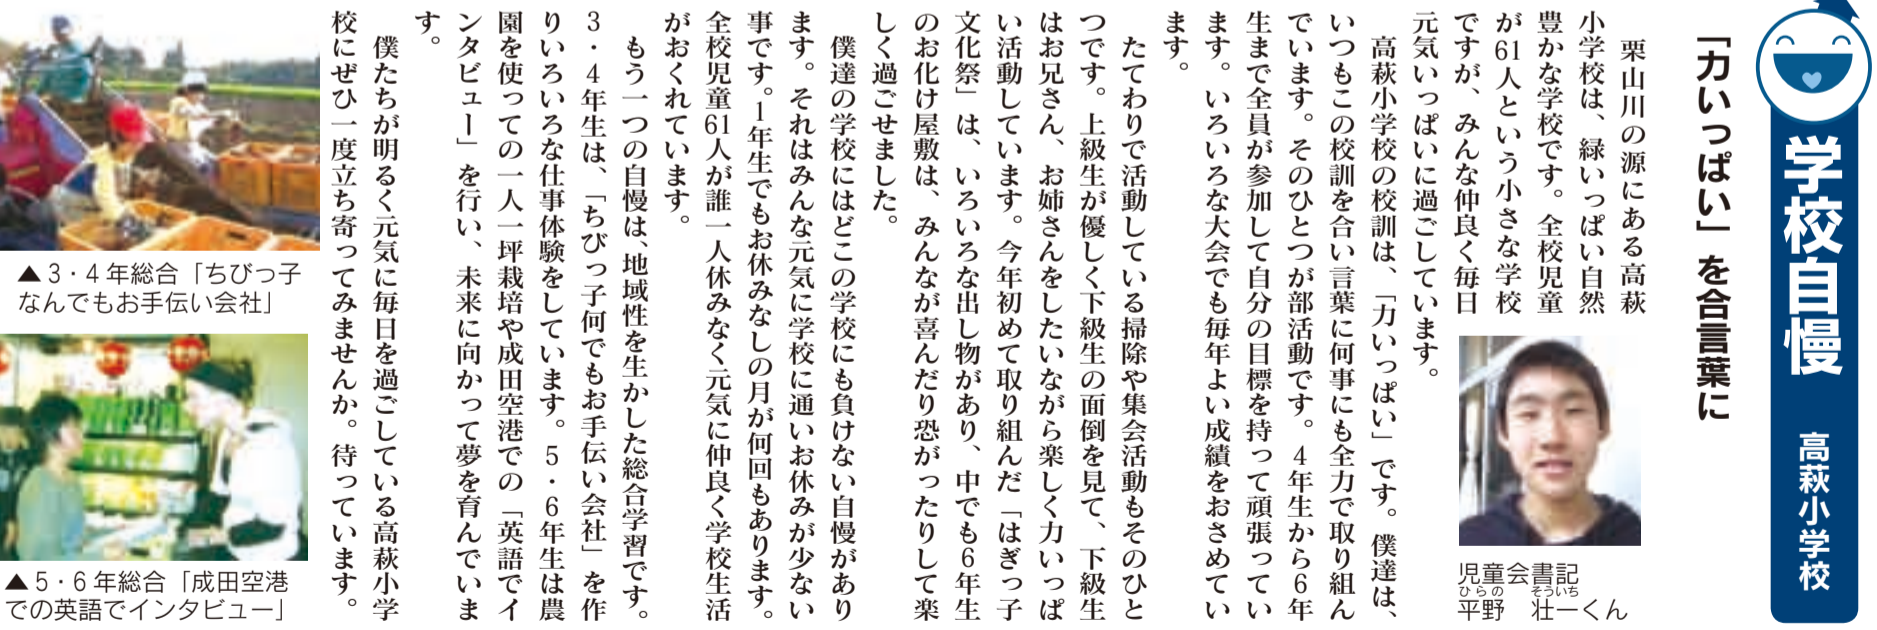 学校自慢 高萩小学校
「力いっぱい」を合言葉に
栗山川の源にある高萩
小学校は、緑いっぱい自然
豊かな学校です。全校児童
が61人という小さな学校
ですが、みんな仲良く毎日
元気いっぱいに過ごしています。
高萩小学校の校訓は、「力いっぱい」です。僕達は、
いつもこの校訓を合い言葉に何事にも全力で取り組ん
でいます。そのひとつが部活動です。4年生から6年
生まで全員が参加して自分の目標を持って頑張ってい
ます。いろいろな大会でも毎年よい成績をおさめてい
ます。
たてわりで活動している掃除や集会活動もそのひと
つです。上級生が優しく下級生の面倒を見て、下級生
はお兄さん、お姉さんをしたいながら楽しく力いっぱ
い活動しています。今年初めて取り組んだ「はぎっ子
文化祭」は、いろいろな出し物があり、中でも6年生
のお化け屋敷は、みんなが喜んだり恐がったりして楽
しく過ごせました。
僕達の学校にはどこの学校にも負けない自慢があり
ます。それはみんな元気に学校に通いお休みが少ない
事です。1年生でもお休みなしの月が何回もあります。
全校児童61人が誰一人休みなく元気に仲良く学校生活
がおくれています。
もう一つの自慢は、地域性を生かした総合学習です。
3・4年生は、「ちびっ子何でもお手伝い会社」を作
りいろいろな仕事体験をしています。5・6年生は農
園を使っての一人一坪栽培や成田空港での「英語でイ
ンタビュー」を行い、未来に向かって夢を育んでいま
す。
僕たちが明るく元気に毎日を過ごしている高萩小学
校にぜひ一度立ち寄ってみませんか。待っています。
児童会書記
ひらの そういち
平野 壮一くん
▲3・4年総合「ちびっ子
なんでもお手伝い会社」
▲5・6年総合「成田空港
での英語でインタビュー」